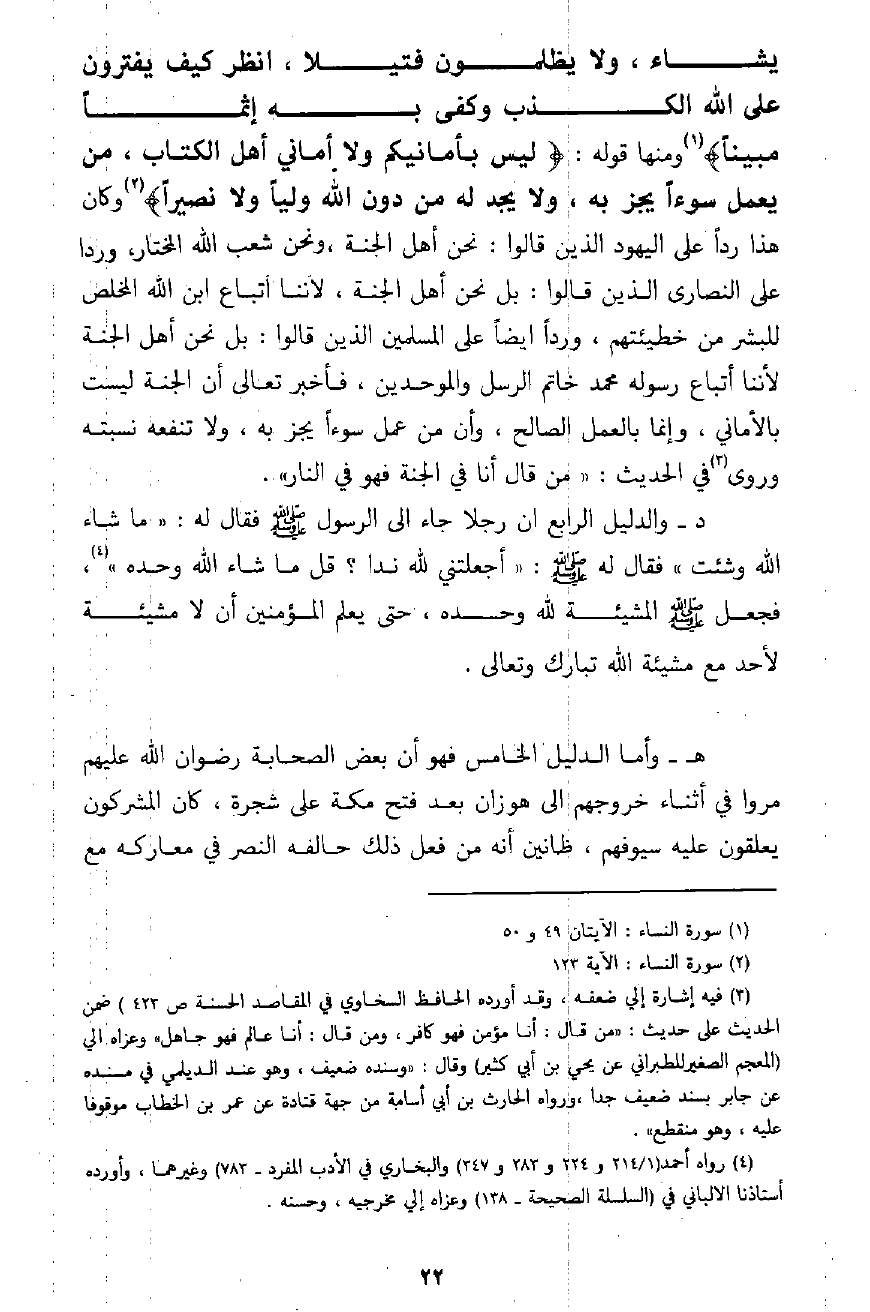 يشاء ، ولا يظلمون فتيلا ، انظر كيف يفترون
على الله الكذب وكفى به إثماً
مبيناً﴾(١) ومنها قوله : ﴿ ليس بأمانيكم ولا أماني أهل الكتاب ، من
يعمل سوءاً يجز به ، ولا يجد له من دون الله ولياً ولا نصيراً﴾(٢) وكان
هذا رداً على اليهود الذين قالوا : نحن أهل الجنة ،ونحن شعب الله المختار، وردا
على النصارى الذين قالوا : بل نحن أهل الجنة ، لأننا أتباع ابن الله المخلص
للبشر من خطيئتهم ، ورداً ايضاً على المسلمين الذين قالوا : بل نحن أهل الجنة
لأننا أتباع رسوله محمد خاتم الرسل والموحدين ، فأخبر تعالى أن الجنة ليست
بالأماني ، وإنما بالعمل الصالح ، وأن من عمل سوءاً يجز به ، ولا تنفعه نسبته
وروى(٣) في الحديث : « من قال أنا في الجنة فهو في النار» .
د ـ والدليل الرابع ان رجلا جاء الى الرسول ﷺ فقال له : « ما شاء
الله وشئت » فقال له ﷺ : « أجعلتني لله ندا ؟ قل ما شاء الله وحده »(٤)،
فجعل ﷺ المشيئة لله وحده ، حتى يعلم المؤمنين أن لا مشيئة
لأحد مع مشيئة الله تبارك وتعالى .
هـ ـ وأما الدليل الخامس فهو أن بعض الصحابة رضوان الله عليهم
مروا في أثناء خروجهم الى هوزان بعد فتح مكة على شجرة ، كان المشركون
يعلقون عليه سيوفهم ، ظانين أنه من فعل ذلك حالفه النصر في معاركه مع
(١) سورة النساء : الآيتان ٤٩ و ٥٠
(٢) سورة النساء : الآية ١٢٣
(٣) فيه إشارة إلي ضعفه ، وقد أورده الحافظ السخاوي في المقاصد الحسنة ص ٤٢٣ ) ضمن
الحديث على حديث : «من قال : أنا مؤمن فهو كافر ، ومن قال : أنا عالم فهو جاهل» وعزاه الي
(المعجم الصغيرللطبراني عن يحي بن أبي كثير) وقال : «وسنده ضعيف ، وهو عند الديلمي في مسنده
عن جابر بسند ضعيف جدا ،ورواه الحارث بن أبي أسامة من جهة قتادة عن عمر بن الخطاب موقوفا
عليه ، وهو منقطع» .
(٤) رواه أحمد(٢١٤/١ و ٢٢٤ و ٢٨٣ و ٣٤٧) والبخاري في الأدب المفرد ـ ٧٨٣) وغيرهما ، وأورده
أستاذنا الالباني في (السلسلة الصحيحة ـ ١٣٨) وعزاه إلي مخرجيه ، وحسنه .
٢٢